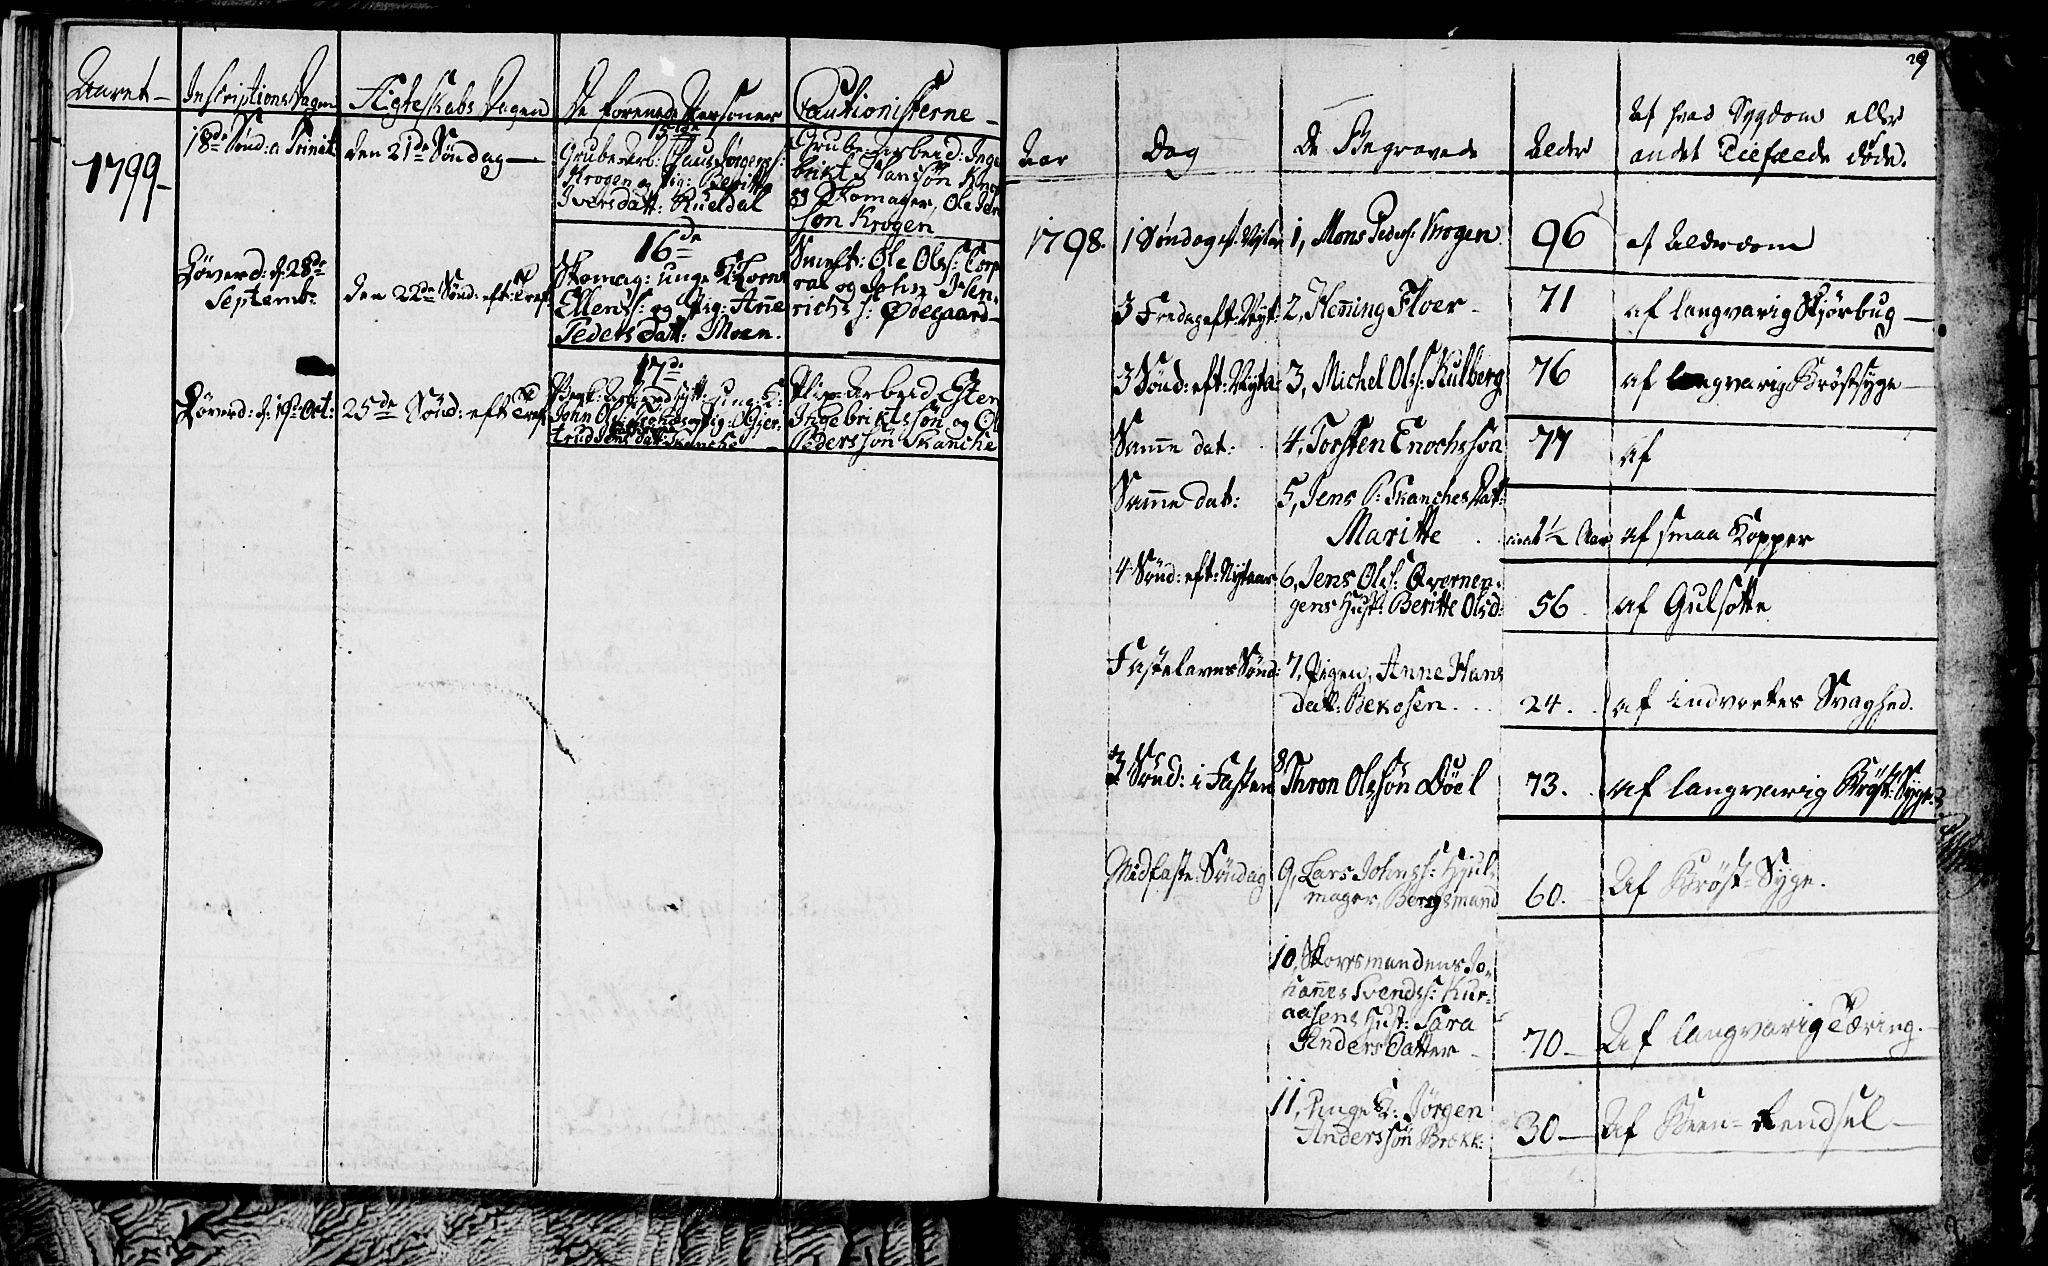 Aaret
Inscriptions Dagen
Ægteskabs Dagen
De forenede Personer
Cautionisterne
1799
18de Sønd: a Trinit
den 21de Søndag
15de
Grube-Arb: Claus Jørgens:
Krogen og Pig: Beritte
Iversdatt: Rueldal
Grube-Arbeid: Inge
brikt Hanssøn
og Skomager, Ole
søn Krogen
Løverd: d: 28de
Septemb:
den 22de Sønd: eft: Tref
16de
Skomag: unge K:
Ellenss: og Pig: Anne
Pedersdatt: Moen.
Smeft: Ole Olss: Torp
ras og John Hen-
richs s: Ødegaard
Løverd: d: 19: Oct:
25de Sønd: eft Tref
17de
John Olss:
trud Jens datt: Skanche
Arbeid Esten
Ingebriktssøn og Ol
Pederssøn Skanche
29
Aar
Dag
De Begravede
Alder
Af hvad Sygdom eller
andet Tilfælde døde.
1798.
1 Søndag eft: Nytaar
1, Mons Peders: Krogen.
96
af Alderdom
3 Fredag eft: Nyt:
2, Henning Floer
71
af langvarig Skjørbug
3 Sønd: eft: Nyta:
3, Michel Ols: Kulberg
76
af langvarig Brøstsyge
Samme dat:
4, Torsten Enochssøn
77
af
Samme dat:
5, Jens P: Skanches Dat:
Maritte
1 1/2 Aar
af smaa Kopper
4 Sønd: eft: Nytaar
6, Jens Ols: Qvernen-
gens Hust: Beritte Olsd:
56
af Gulsotte
Fastelavns Sønd:
7, Pigen, Anne Hans
datt: Bekosen.
24.
af indvortes Svaghed.
3 Sønd: i Fasten
8, Thron Olssøn Døel
73.
af langvarig Brøst-Syge
Midfaste-Søndag
9, Lars Johnss: Hjul-
mager, Bergsmand
60.
Af Brøst-Syge.
10, Skovsmandens Jo-
hannes Svendss: Kur-
aasens Hust: Sara
Anders Datter
70
Af langvarig Tæring.
11, Unge K: Jørgen
Anderssøn Brekk:
30
Af Been-Rendsel